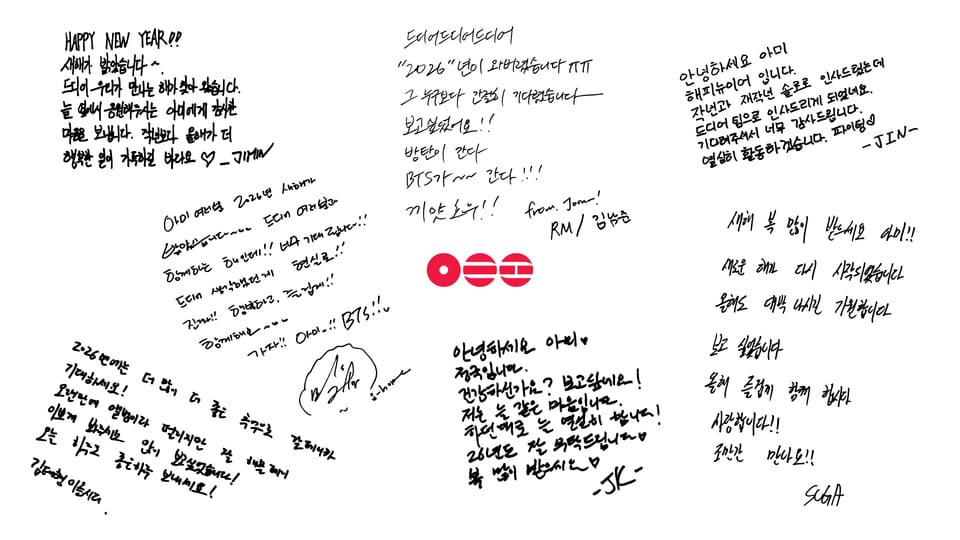 HAPPY NEW YEAR!!
새해가 밝았습니다~.
드디어 우리가 만나는 해가 찾아 왔습니다.
늘 옆에서 응원해주시는 아미에게 감사한
마음을 보냅니다. 작년보다 올해가 더
행복한 일이 가득하길 바라요 ♡ _JIMIN
드디어드디어드디어
"2026"년이 와버렸습니다 ㅠㅠ
그 누구보다 간절히 기다렸습니다
보고싶었어요!!
방탄이 간다
BTS가~~ 간다!!!
끼얏호우!!
from. Joon!
RM / 김남준
안녕하세요 아미
해피뉴이어 입니다.
작년과 재작년 솔로로 인사드렸는데
드디어 팀으로 인사드리게 되었네요.
기다려주셔서 너무 감사드립니다.
열심히 활동하겠습니다. 파이팅♡
-JIN-
아미 여러분 2026년 새해가
밝았습니다~~~ 드디어 여러분과
함께하는 해인데!! 너무 기대됩니다!!
드디어 생각했던게 현실로!!
진짜!! 행복하고, 즐겁게!!
함께해요~~~
가자!! 아미!! BTS!!
j-hope
새해 복 많이 받으세요 아미!!
새로운 해가 다시 시작되었습니다
올해도 대박 나시길 기원합니다
보고 싶었습니다
올해 즐겁게 함께 합시다
사랑합니다!!
조만간 만나요!!
SUGA
2026년에는 더 많이 더 좋은 추억으로 갈테니까
기대하세요!
오랜만에 앨범이라 떨리지만 잘
이쁘게 봐주시오 많이 보고싶었습니다!
오늘 하루도 좋은하루 보내세요!
김태형 이올시다.
안녕하세요 아미♡
정국입니다.
건강하신가요? 보고싶네요!
저는 늘 같은 마음입니다.
하던대로 늘 열심히 합니다!
26년도 잘 부탁드립니다♡
복 많이 받으시오♡
-JK-